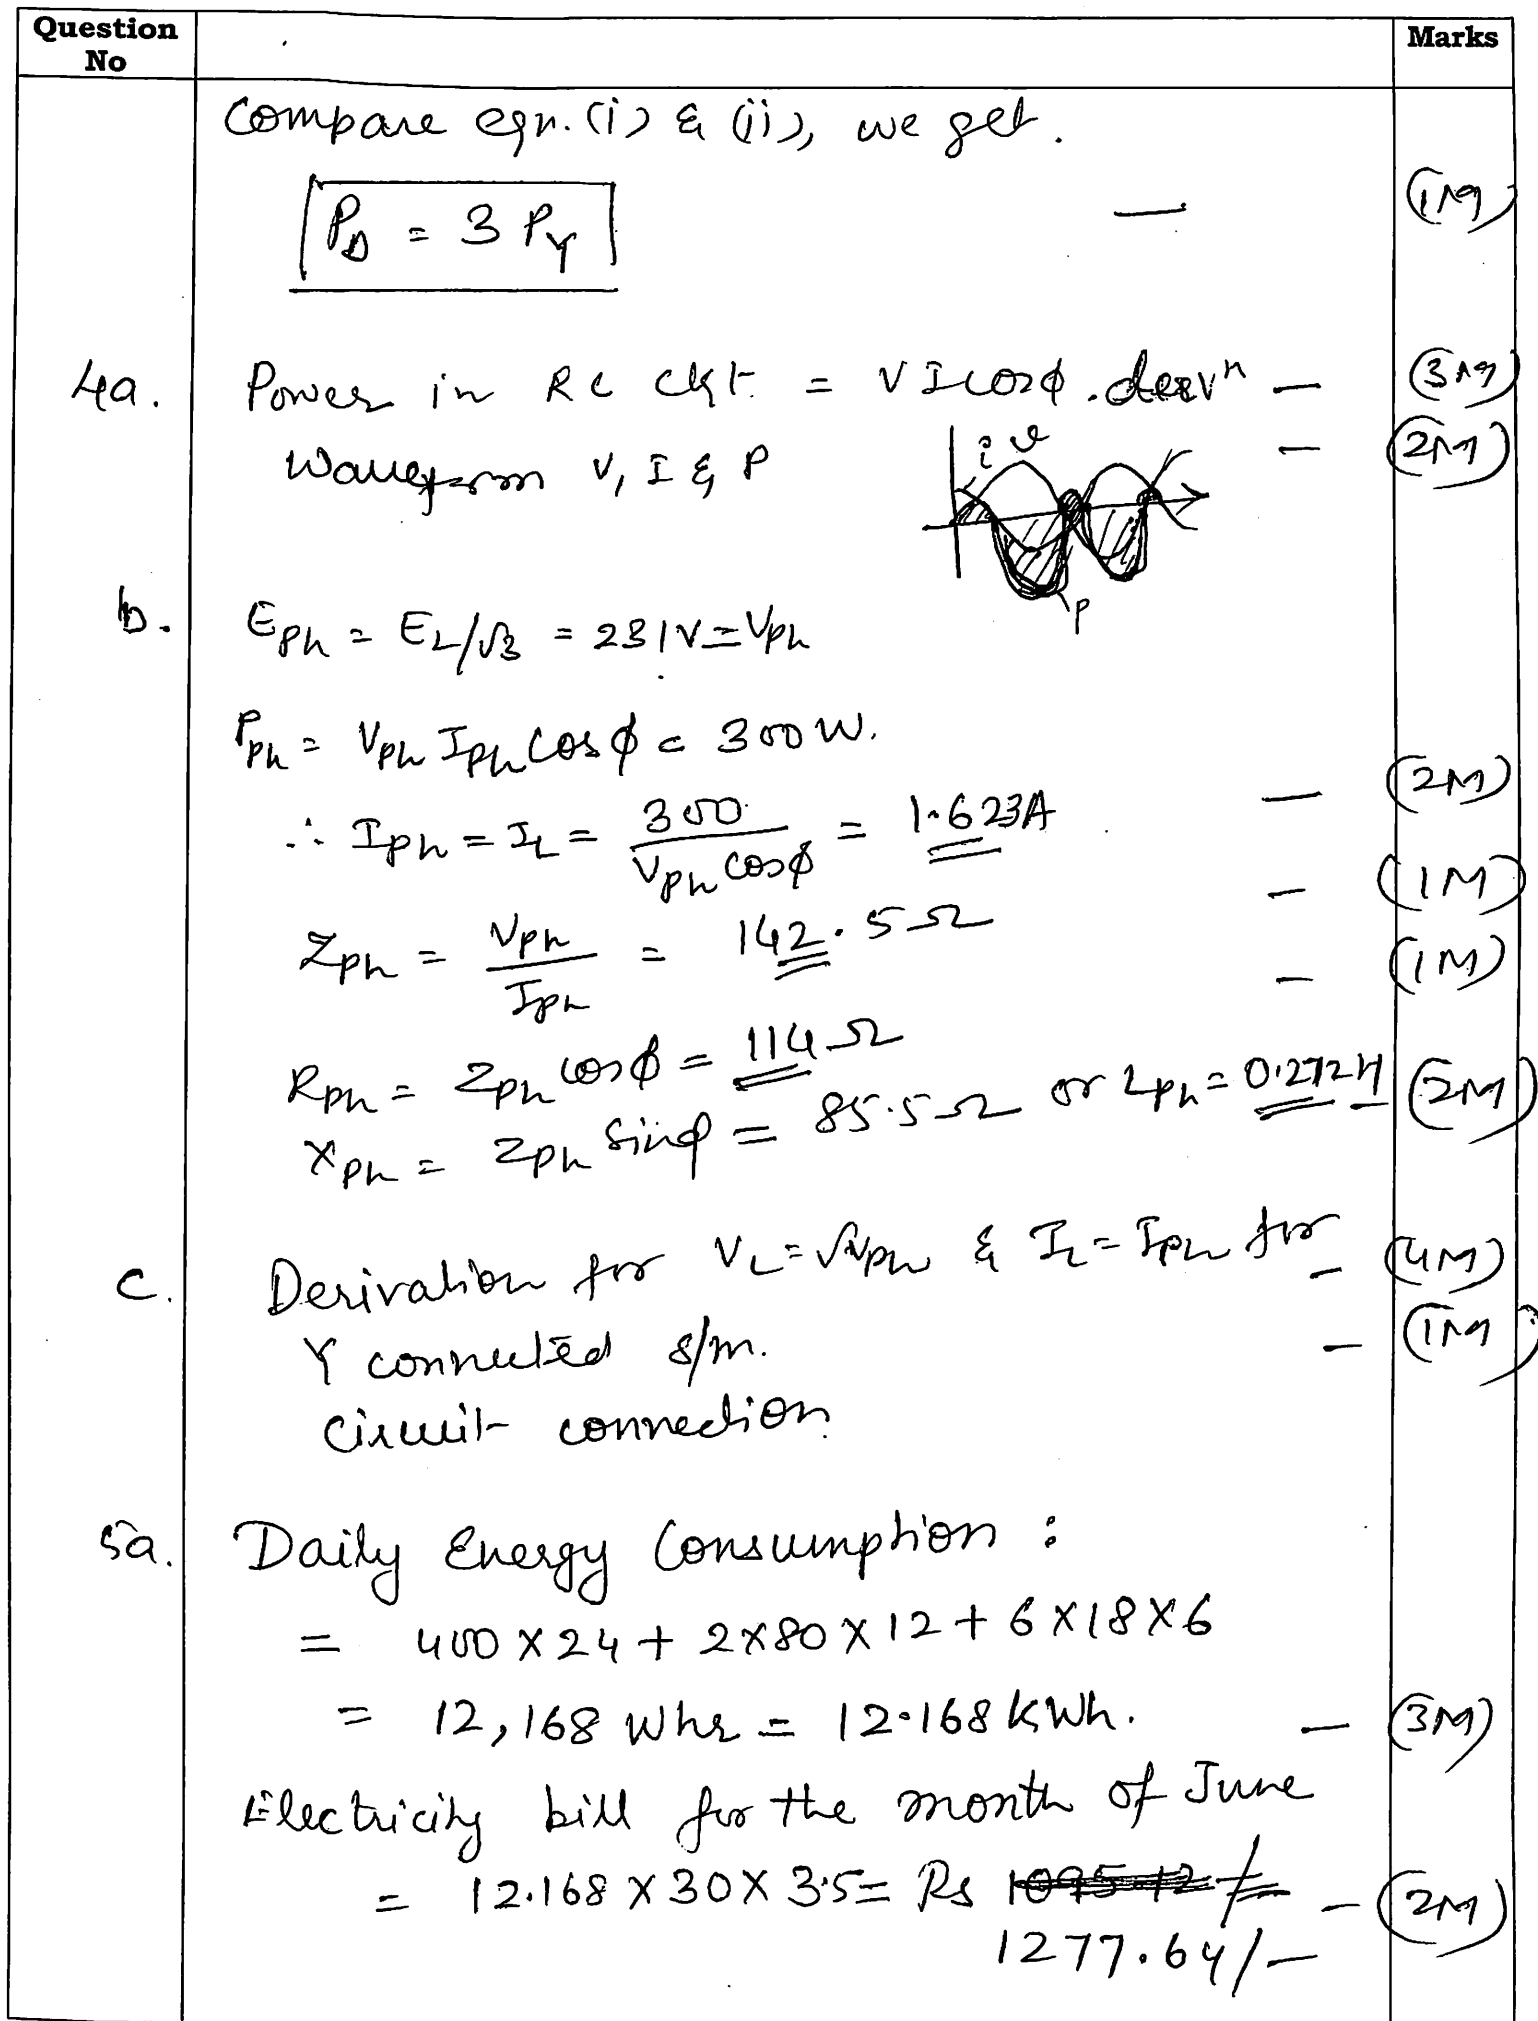 Question No Marks
Compare eqn. (i) & (ii), we get.
P_Δ = 3 P_Y — (1M)
4a. Power in RC ckt. = VIcosϕ. dervⁿ — (3M)
Waveform V, I & P — (2M)
i v
p
b. E_Ph = E_L/√3 = 231V = V_Ph
P_Ph = V_Ph I_Ph cosϕ = 300 W.
∴ I_Ph = I_L = 300 / V_Ph cosϕ = 1.623A — (2M)
Z_Ph = V_Ph / I_Ph = 142.5Ω — (1M)
R_Ph = Z_Ph cosϕ = 114Ω — (1M)
X_Ph = Z_Ph Sinϕ = 85.5Ω or L_Ph = 0.272H (2M)
c. Derivation for V_L = √3V_Ph & I_L = I_Ph for — (4M)
Y connected s/m. — (1M)
Circuit connection
5a. Daily Energy Consumption :
= 400 X 24 + 2X80 X 12 + 6 X18 X6
= 12,168 Whr = 12.168 kWh. — (3M)
Electricity bill for the month of June
= 12.168 X 30 X 3.5 = Rs 1095.12/= — (2M)
1277.64/–